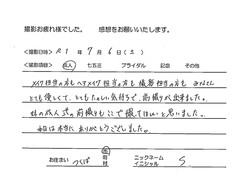 撮影お疲れ様でした。 感想をお願いいたします。
＜撮影日時＞ R1年 7月 6日(土)
＜撮影項目＞ 成人 七五三 ブライダル 記念 その他
メイク担当の方もヘアメイク担当の方も撮影担当の方も みなさん
とても優しくて、とてもたのしい気持ちで、前撮りが出来ました。
妹の成人式の前撮りもここで撮ってほしいと思いました。
今日は本当にありがとうございました。
お住まい つくば 市 町 村
ニックネーム イニシャル S